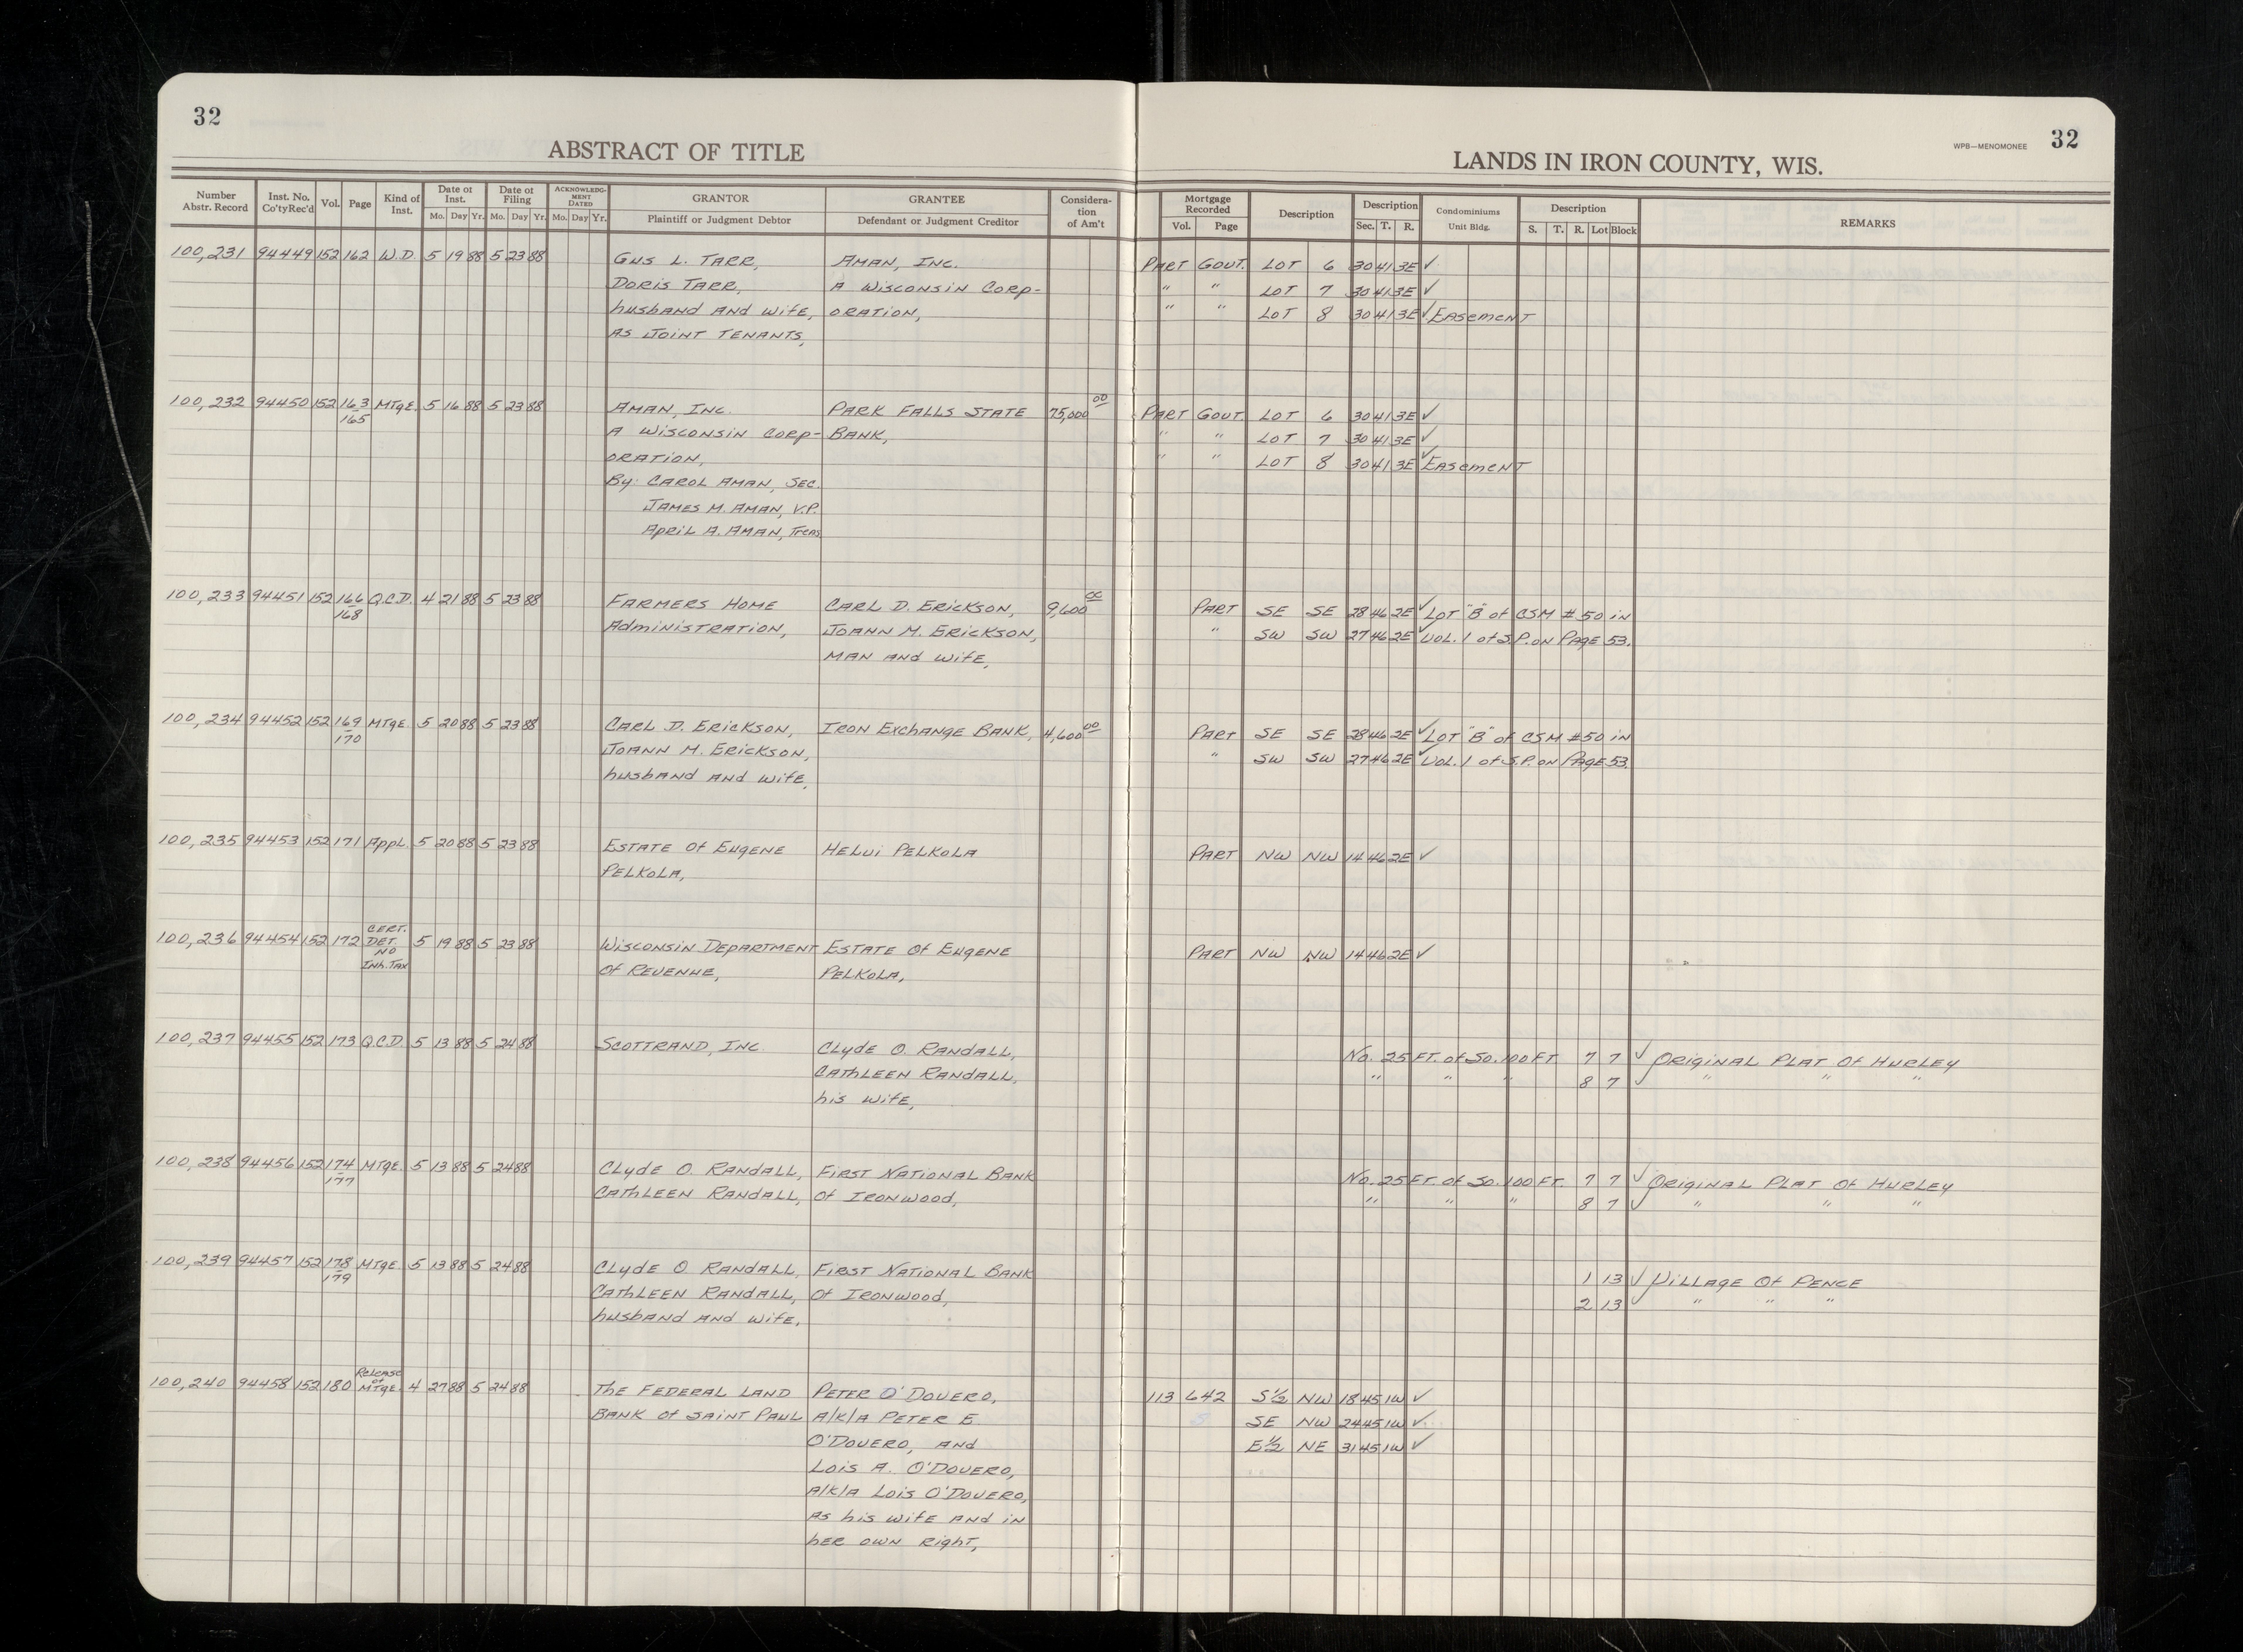 32
ABSTRACT OF TITLE
LANDS IN IRON COUNTY, WIS.
WPB—MENOMONEE 32
Number Abstr. Record Inst. No. Co'ty Rec'd Vol. Page Kind of Inst. Date of Inst. Mo. Day Yr. Date of Filing Mo. Day Yr. ACKNOWLEDGMENT DATED Mo. Day Yr. GRANTOR Plaintiff or Judgment Debtor GRANTEE Defendant or Judgment Creditor Consideration of Am't Mortgage Recorded Vol. Page Description Description Sec. T. R. Condominiums Unit Bldg. Description S. T. R. Lot Block REMARKS
100,231 94449 152 162 W.D. 5 19 88 5 23 88 Gus L. Tarr, Aman, Inc. Part Gout. Lot 6 30 41 3E ✓
Doris Tarr, A Wisconsin Corp- " " Lot 7 30 41 3E ✓
husband and wife, oration, " " Lot 8 30 41 3E ✓ Easement
as Joint Tenants,
100,232 94450 152 163 Mtge. 5 16 88 5 23 88 Aman, Inc. Park Falls State 75,000 00 Part Gout. Lot 6 30 41 3E ✓
165 A Wisconsin Corp- Bank, " " Lot 7 30 41 3E ✓
oration, " " Lot 8 30 41 3E ✓ Easement
By: Carol Aman, Sec.
James M. Aman, V.P.
April A. Aman, Treas
100,233 94451 152 166 Q.C.D. 4 21 88 5 23 88 Farmers Home Carl D. Erickson, 9,600 00 Part SE SE 28 46 2E ✓ Lot "B" of CSM #50 in
168 Administration, Joann M. Erickson, " SW SW 27 46 2E ✓ Vol. 1 of S.P. on Page 53.
man and wife,
100,234 94452 152 169 Mtge. 5 20 88 5 23 88 Carl D. Erickson, Iron Exchange Bank, 4,600 00 Part SE SE 28 46 2E ✓ Lot "B" of CSM #50 in
170 Joann M. Erickson, " SW SW 27 46 2E ✓ Vol. 1 of S.P. on Page 53.
husband and wife,
100,235 94453 152 171 Appl. 5 20 88 5 23 88 Estate of Eugene Helvi Pelkola Part NW NW 14 46 2E ✓
Pelkola,
100,236 94454 152 172 Cert. Det. No Inh. Tax 5 19 88 5 23 88 Wisconsin Department Estate of Eugene Part NW NW 14 46 2E ✓
of Revenue, Pelkola,
100,237 94455 152 173 Q.C.D. 5 13 88 5 24 88 Scottrand, Inc. Clyde O. Randall, No. 25 Ft. of So. 100 Ft. 7 7 ✓ Original Plat of Hurley
Cathleen Randall, " " " 8 7 ✓ " " "
his wife,
100,238 94456 152 174 Mtge. 5 13 88 5 24 88 Clyde O. Randall, First National Bank No. 25 Ft. of So. 100 Ft. 7 7 ✓ Original Plat of Hurley
177 Cathleen Randall, of Ironwood, " " " 8 7 ✓ " " "
100,239 94457 152 178 Mtge. 5 13 88 5 24 88 Clyde O Randall, First National Bank 1 13 ✓ Village of Pence
179 Cathleen Randall, of Ironwood, 2 13 ✓ " " "
husband and wife,
100,240 94458 152 180 Release of Mtge. 4 27 88 5 24 88 The Federal Land Peter O'Dovero, 113 642 S½ NW 18 45 1W ✓
Bank of Saint Paul a/k/a Peter E. SE NW 24 45 1W ✓
O'Dovero, and E½ NE 31 45 1W ✓
Lois A. O'Dovero,
a/k/a Lois O'Dovero,
as his wife and in
her own right,